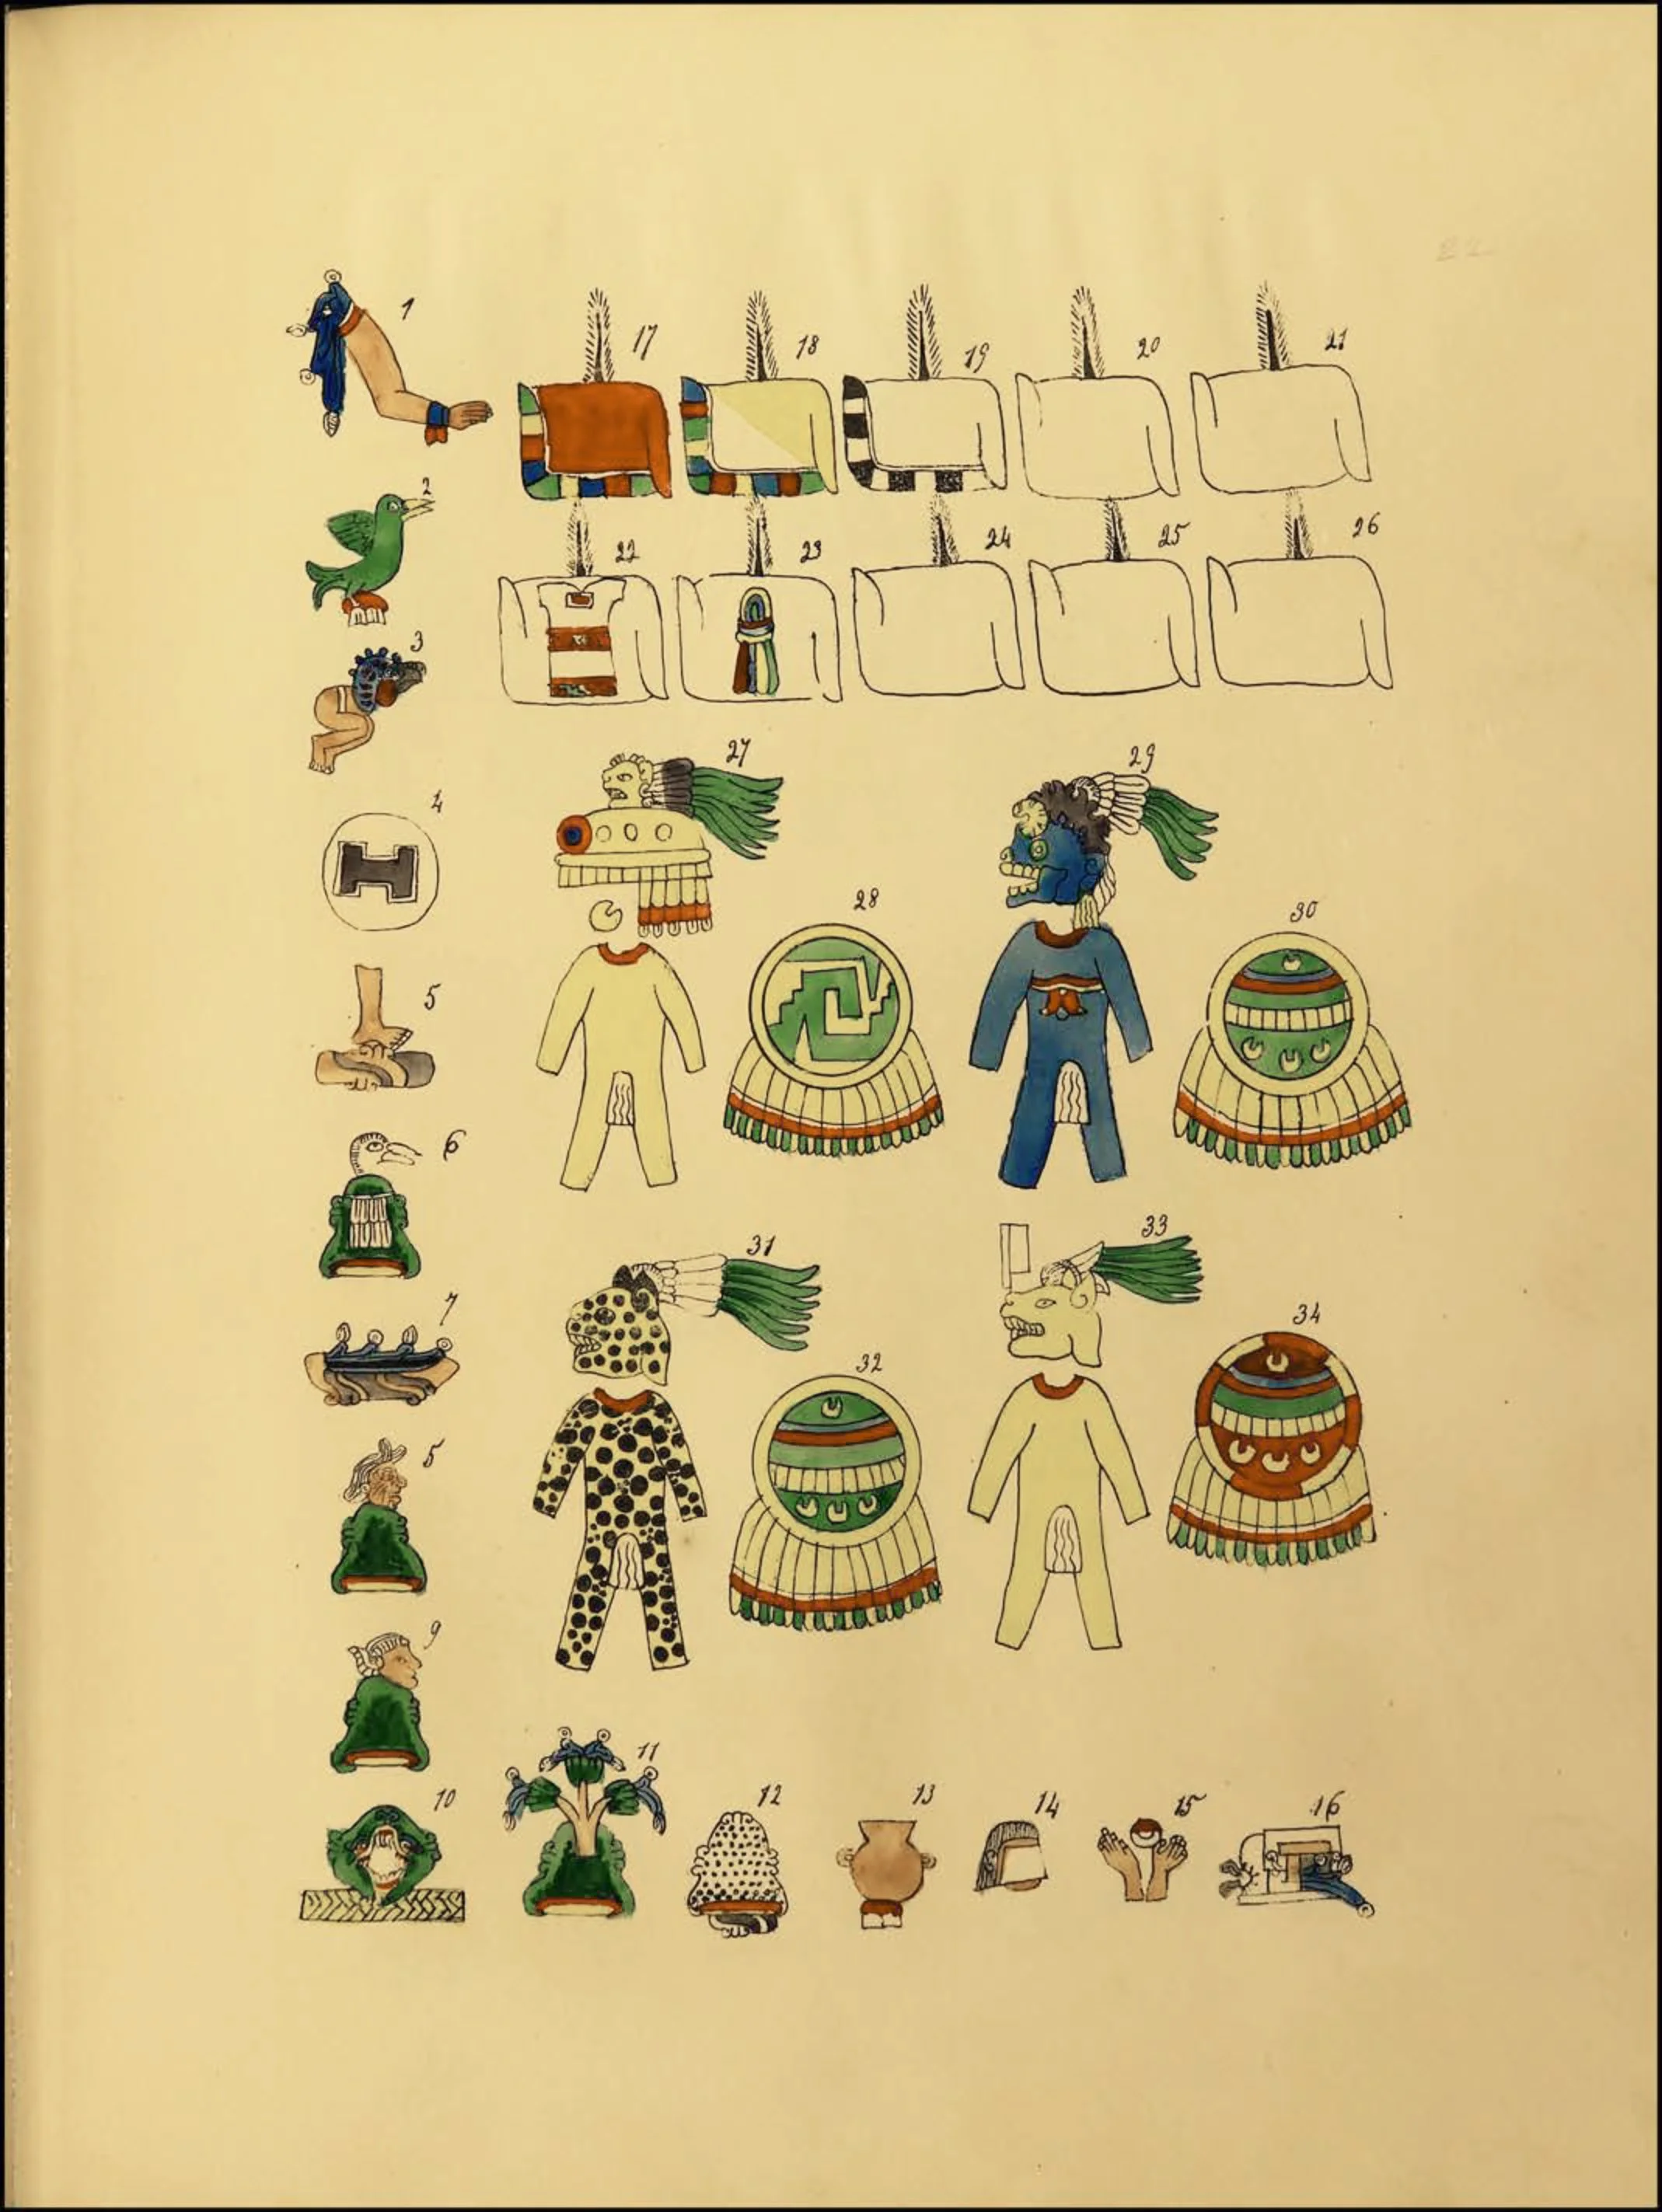 1
17
18
19
20
21
2
22
23
24
25
26
3
27
29
4
28
30
5
6
31
33
7
32
34
5
9
10
11
12
13
14
15
16